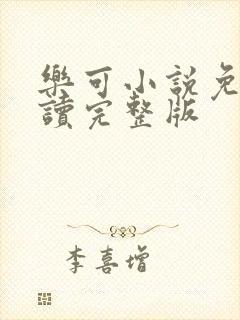 樂可小說免
讀完整版
李喜增